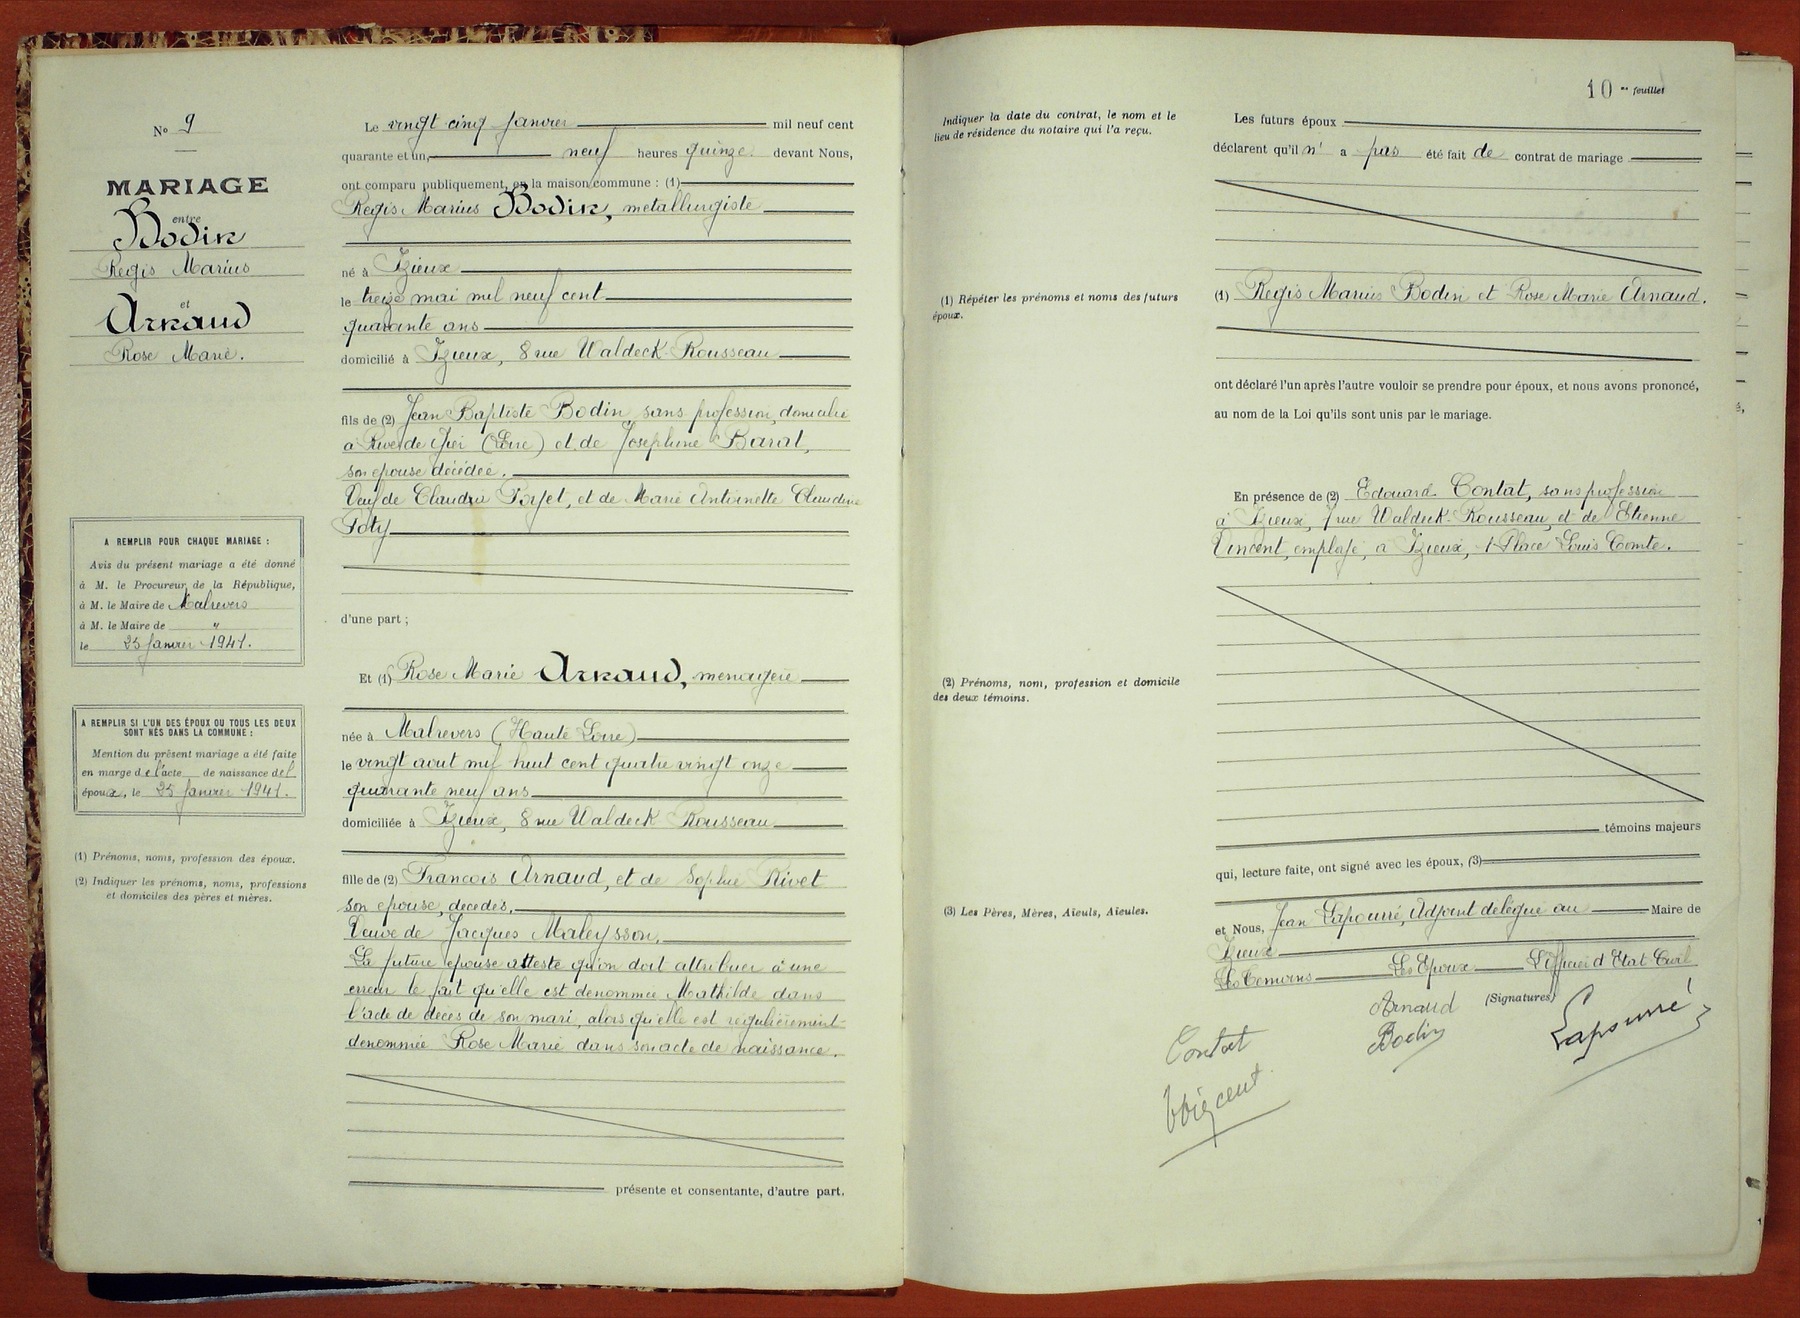 No 9
MARIAGE
entre
Bodin
Regis Marius
et
Arnaud
Rose Marie.
A REMPLIR POUR CHAQUE MARIAGE :
Avis du présent mariage a été donné
à M. le Procureur de la République,
à M. le Maire de Malrevers
à M. le Maire de "
le 25 Janvier 1941.
A REMPLIR SI L'UN DES ÉPOUX OU TOUS LES DEUX
SONT NÉS DANS LA COMMUNE :
Mention du présent mariage a été faite
en marge de l'acte de naissance de l'
époux, le 25 Janvier 1941.
(1) Prénoms, noms, profession des époux.
(2) Indiquer les prénoms, noms, professions
et domiciles des pères et mères.
Le vingt cinq Janvier mil neuf cent
quarante et un, neuf heures quinze devant Nous,
ont comparu publiquement, en la maison commune : (1)
Regis Marius Bodin, metallurgiste
né à Izieux
le treize mai mil neuf cent
quarante ans
domicilié à Izieux, 8 rue Waldeck-Rousseau
fils de (2) Jean Baptiste Bodin, sans profession, domicilié
a Rive de Gier (Loire) et de Josephine Barat,
son epouse décédée.
Veuf de Claudia Forjet, et de Marie Antoinette Claudine
Poty
d'une part ;
Et (1) Rose Marie Arnaud, menagere
née à Malrevers (Haute Loire)
le vingt aout mil huit cent quatre vingt onze
quarante neuf ans
domiciliée à Izieux, 8 rue Waldeck Rousseau
fille de (2) Francois Arnaud, et de Sophie Rivet
son epouse, décédés.
Veuve de Jacques Maleysson.
La future epouse atteste qu'on doit attribuer à une
erreur le fait qu'elle est denommée Mathilde dans
l'acte de décès de son mari, alors qu'elle est regulièrement
denommée Rose Marie dans son acte de naissance.
présente et consentante, d'autre part.
10 me feuillet
Indiquer la date du contrat, le nom et le
lieu de résidence du notaire qui l'a reçu.
(1) Répéter les prénoms et noms des futurs
époux.
(2) Prénoms, nom, profession et domicile
des deux témoins.
(3) Les Pères, Mères, Aïeuls, Aïeules.
Les futurs époux
déclarent qu'il n' a pas été fait de contrat de mariage
(1) Regis Marius Bodin et Rose Marie Arnaud.
ont déclaré l'un après l'autre vouloir se prendre pour époux, et nous avons prononcé,
au nom de la Loi qu'ils sont unis par le mariage.
En présence de (2) Edouard Contat, sans profession
à Izieux, 7 rue Waldeck-Rousseau, et de Etienne
Vincent, employé, a Izieux, 1 Place Louis Comte.
témoins majeurs
qui, lecture faite, ont signé avec les époux, (3)
et Nous, Jean Lapourré, Adjoint delegue au Maire de
Izieux
Les Temoins Les Epoux L'Officier d'Etat Civil
(Signatures)
Arnaud
Contat Bodin Lapourré
Vincent